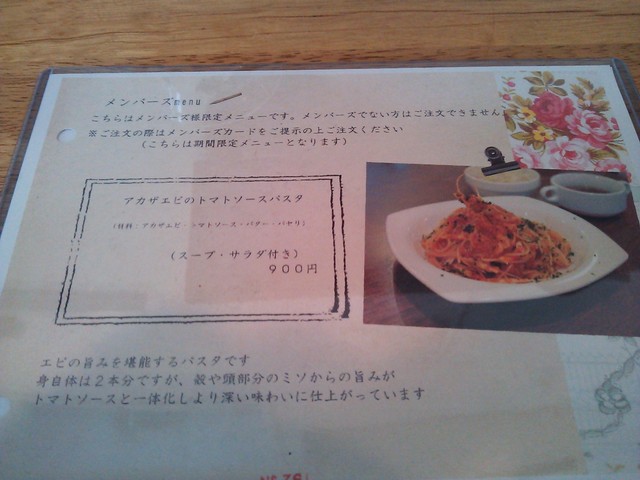 メンバーズmenu
こちらはメンバーズ様限定メニューです。メンバーズでない方はご注文できません
※ご注文の際はメンバーズカードをご提示の上ご注文ください
(こちらは期間限定メニューとなります)
アカザエビのトマトソースパスタ
(材料:アカザエビ・トマトソース・バター・パセリ)
(スープ・サラダ付き)
900円
エビの旨みを堪能するパスタです
身自体は2本分ですが、殻や頭部分のミソからの旨みが
トマトソースと一体化しより深い味わいに仕上がっています